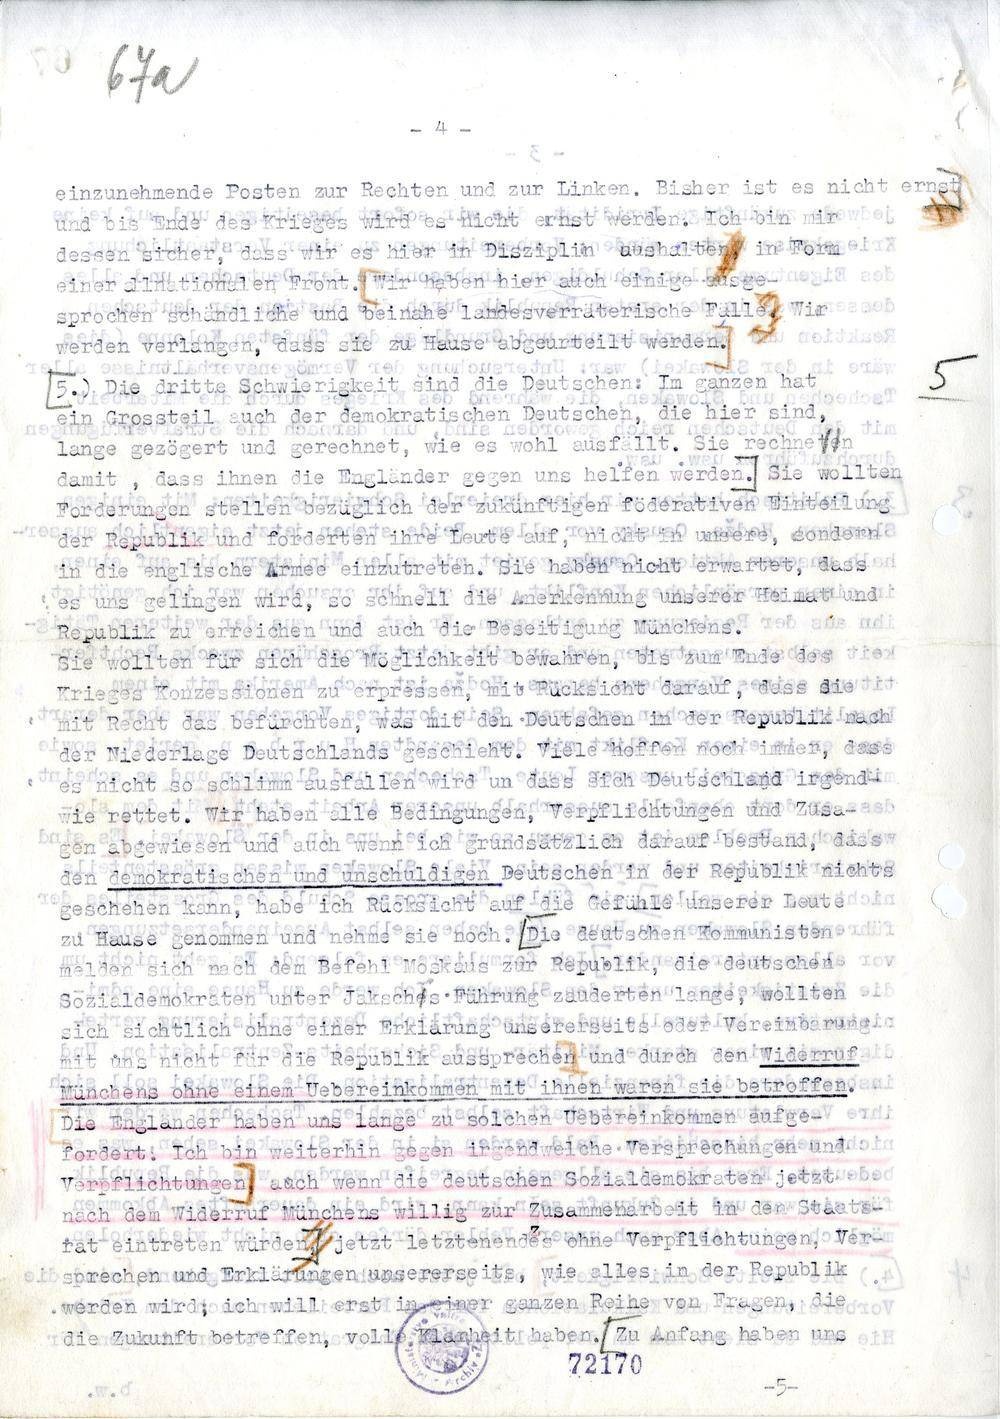 67a
- 4 -
einzunehmende Posten zur Rechten und zur Linken. Bisher ist es nicht ernst
und bis Ende des Krieges wird es nicht ernst werden. Ich bin mir
dessen sicher, dass wir es hier in Disziplin aushalten, in Form
einer allnationalen Front. [Wir haben hier auch einige ausge-
sprochen schändliche und beinahe landesverräterische Fälle. Wir
werden verlangen, dass sie zu Hause abgeurteilt werden.]
[5.) Die dritte Schwierigkeit sind die Deutschen: Im ganzen hat
5
ein Grossteil auch der demokratischen Deutschen, die hier sind,
lange gezögert und gerechnet, wie es wohl ausfällt. Sie rechneten
damit , dass ihnen die Engländer gegen uns helfen werden.] Sie wollten
Forderungen stellen bezüglich der zukünftigen föderativen Einteilung
der Republik und forderten ihre Leute auf, nicht in unsere, sondern
in die englische Armee einzutreten. Sie haben nicht erwartet, dass
es uns gelingen wird, so schnell die Anerkennung unserer Heimat und
Republik zu erreichen und auch die Beseitigung Münchens.
Sie wollten für sich die Möglichkeit bewahren, bis zum Ende des
Krieges Konzessionen zu erpressen, mit Rücksicht darauf, dass sie
mit Recht das befürchten, was mit den Deutschen in der Republik nach
der Niederlage Deutschlands geschieht. Viele hoffen noch immer, dass
es nicht so schlimm ausfallen wird un dass sich Deutschland irgend-
wie rettet. Wir haben alle Bedingungen, Verpflichtungen und Zusa-
gen abgewiesen und auch wenn ich grundsätzlich darauf bestand, dass
den demokratischen und unschuldigen Deutschen in der Republik nichts
geschehen kann, habe ich Rücksicht auf die Gefühle unserer Leute
zu Hause genommen und nehme sie noch. [Die deutschen Kommunisten
melden sich nach dem Befehl Moskaus zur Republik, die deutschen
Sozialdemokraten unter Jakschs Führung zauderten lange, wollten
sich sichtlich ohne einer Erklärung unsererseits oder Vereinbarung
mit uns nicht für die Republik aussprechen] und durch den Widerruf
Münchens ohne einem Uebereinkommen mit ihnen waren sie betroffen.
[Die Engländer haben uns lange zu solchen Uebereinkommen aufge-
fordert. Ich bin weiterhin gegen irgendwelche Versprechungen und
Verpflichtungen,] auch wenn die deutschen Sozialdemokraten jetzt
nach dem Widerruf Münchens willig zur Zusammenarbeit in den Staats-
rat eintreten würden,] jetzt letztenendes ohne Verpflichtungen, Ver-
sprechen und Erklärungen unsererseits, wie alles in der Republik
werden wird; ich will erst in einer ganzen Reihe von Fragen, die
die Zukunft betreffen, volle Klarheit haben. [Zu Anfang haben uns
72170
-5-